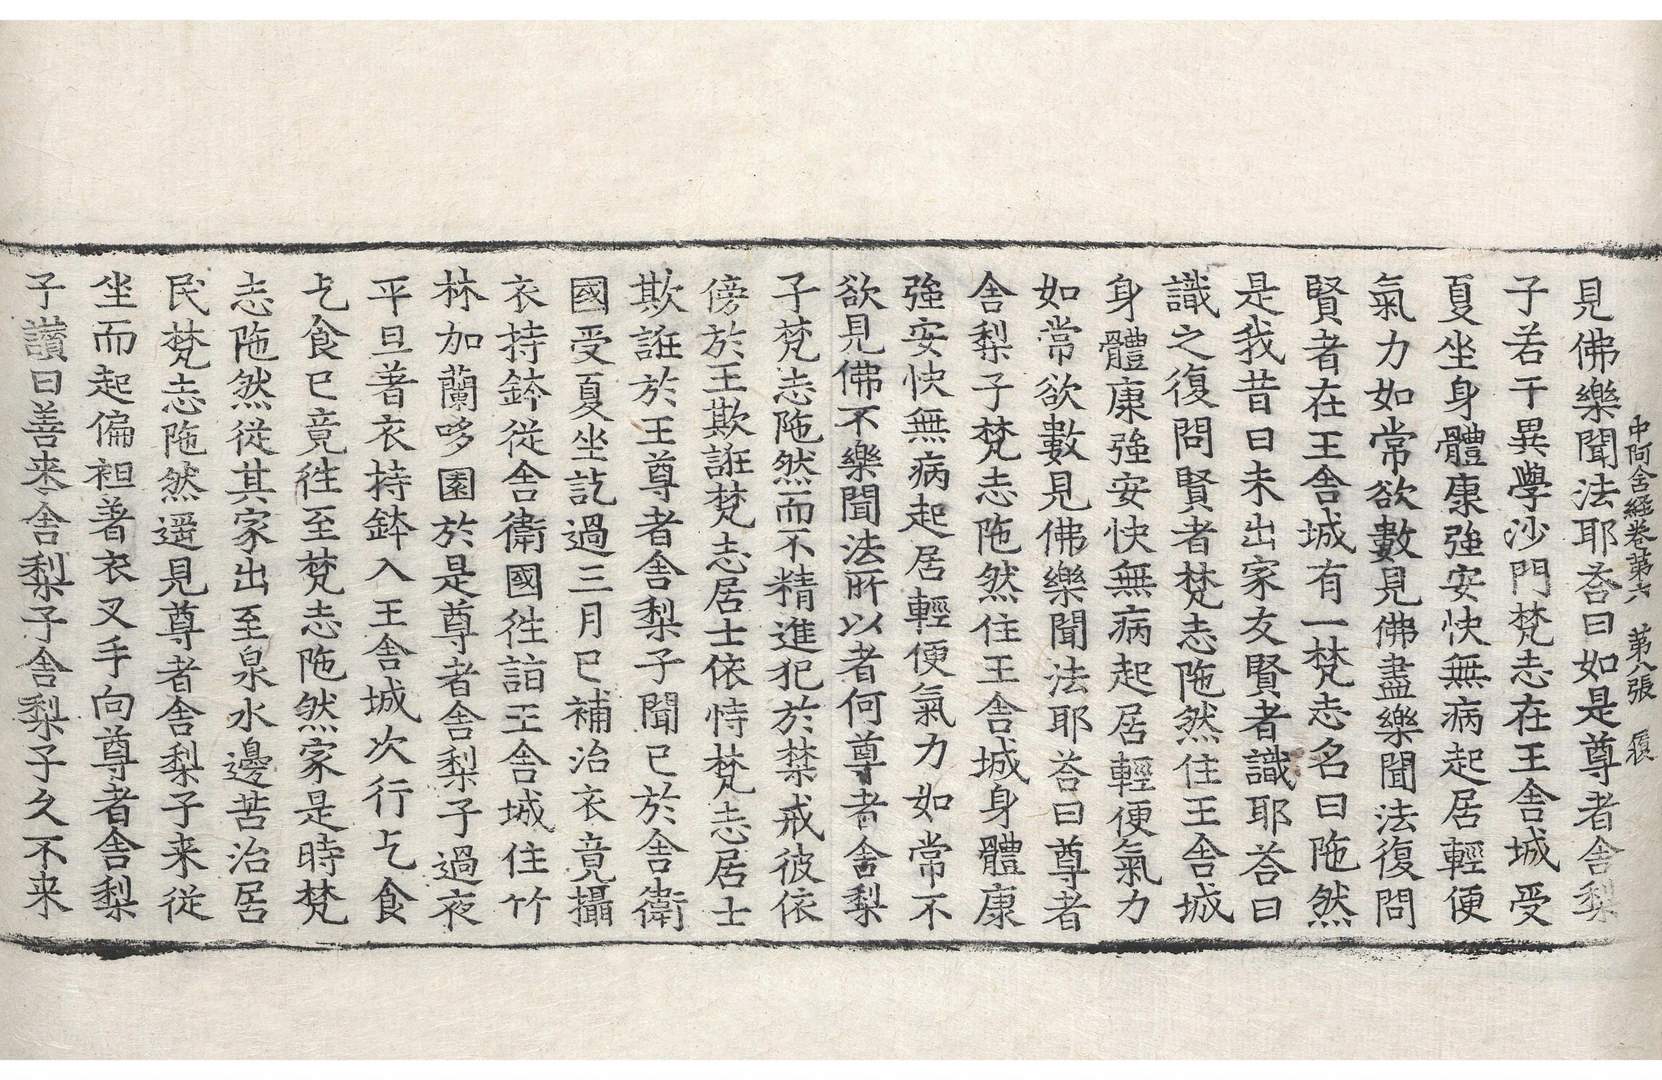 中阿含経卷第六 第八張 履
見佛樂聞法耶荅曰如是尊者舍梨
子若干異學沙門梵志在王舍城受
夏坐身體康強安快無病起居輕便
氣力如常欲數見佛盡樂聞法復問
賢者在王舍城有一梵志名曰陁然
是我昔日未出家友賢者識耶荅曰
識之復問賢者梵志陁然住王舍城
身體康強安快無病起居輕便氣力
如常欲數見佛樂聞法耶荅曰尊者
舍梨子梵志陁然住王舍城身體康
強安快無病起居輕便氣力如常不
欲見佛不樂聞法所以者何尊者舍梨
子梵志陁然而不精進犯於禁戒彼依
傍於王欺誑梵志居士依恃梵志居士
欺誑於王尊者舍梨子聞已於舍衛
國受夏坐訖過三月已補治衣竟攝
衣持鉢從舍衛國徃詣王舍城住竹
林加蘭哆園於是尊者舍梨子過夜
平旦著衣持鉢入王舍城次行乞食
乞食已竟徃至梵志陁然家是時梵
志陁然從其家出至泉水邊苦治居
民梵志陁然遥見尊者舍梨子来從
坐而起偏袒著衣叉手向尊者舍梨
子讃曰善来舍梨子舍梨子久不来